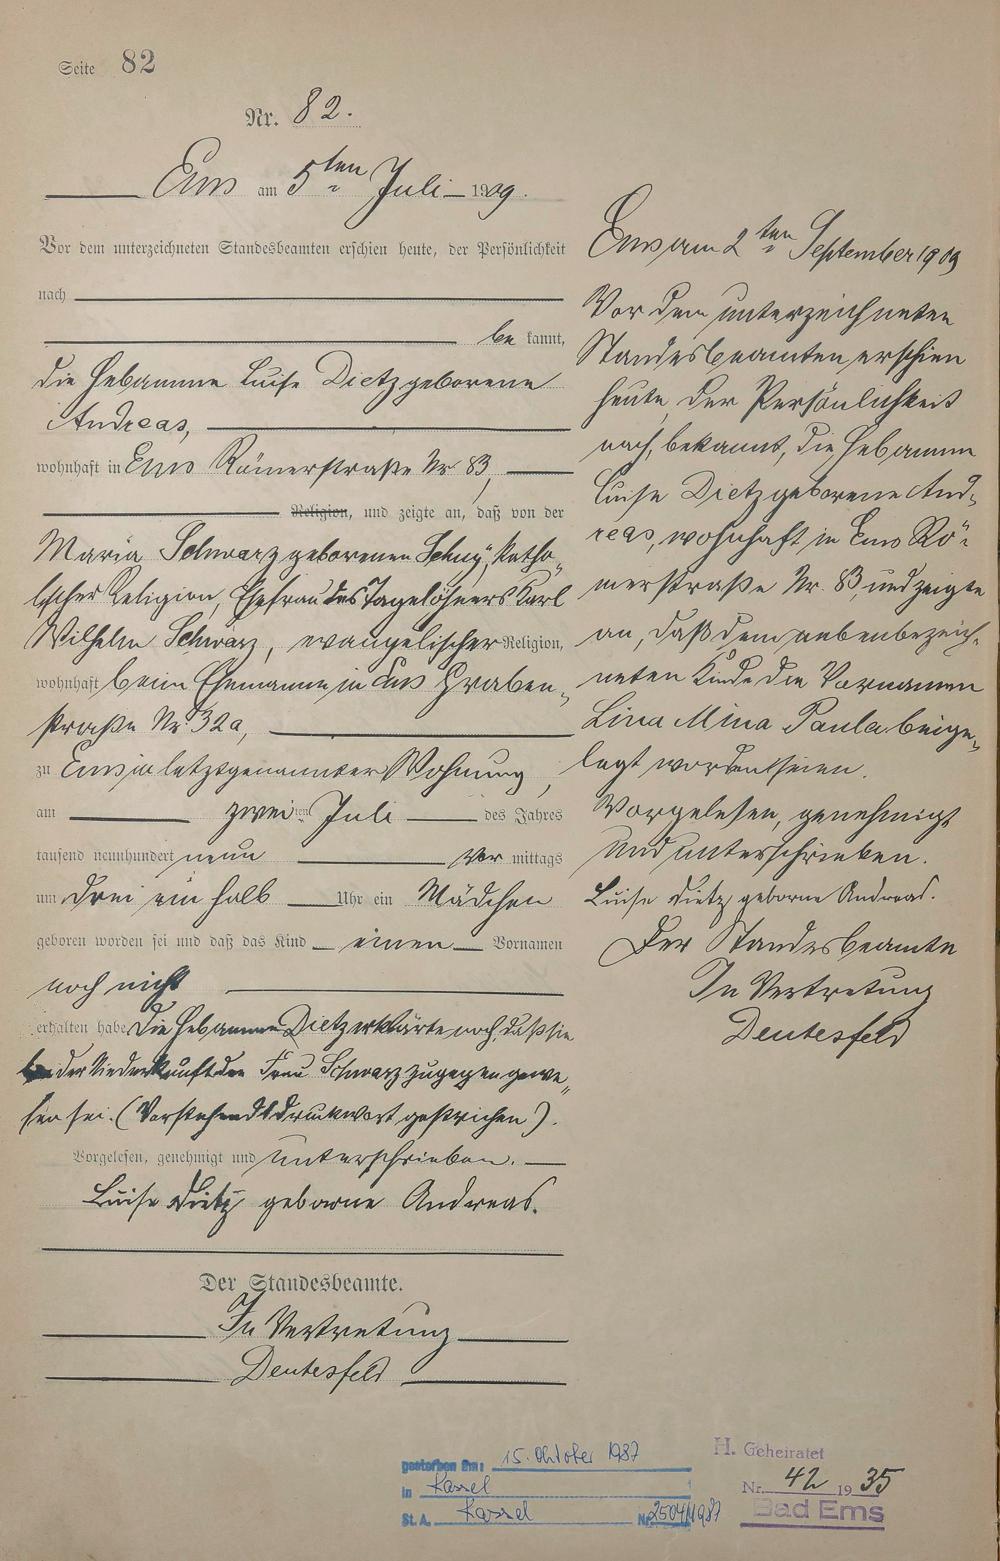 Seite 82
Nr. 82.
Ems am 5ten Juli 1909.
Vor dem unterzeichneten Standesbeamten erschien heute, der Persönlichkeit
nach
be kannt,
die Hebamme Luise Dietz geborene
Andreas,
wohnhaft in Ems Römerstraße Nr 83,
Religion, und zeigte an, daß von der
Maria Schwarz geborenen katho-
lischer Religion, Ehefrau des Tagelöhners Karl
Wilhelm Schwarz, evangelischer Religion,
wohnhaft beim Ehemanne in Ems Graben-
straße Nr. 32a,
zu Ems in letztgenannter Wohnung,
am zweiten Juli des Jahres
tausend neunhundert neun Vor mittags
um drei ein halb Uhr ein Mädchen
geboren worden sei und daß das Kind einen Vornamen
noch nicht
erhalten habe. Die Hebamme Dietz erklärte noch, daß sie
bei der Niederkunft der Frau Schwarz zugegen gewe-
sen sei. (Vorstehend 1 Druckwort gestrichen).
Vorgelesen, genehmigt und unterschrieben.
Luise Dietz geborne Andreas.
Der Standesbeamte.
In Vertretung
Deutesfeld
Ems am 2ten September 1909
Vor dem unterzeichneten
Standesbeamten erschien
heute, der Persönlichkeit
nach, bekannt, die Hebamme
Luise Dietz geborene And-
reas, wohnhaft in Ems Rö-
merstraße Nr. 83, und zeigte
an, daß dem nebenbezeich-
neten Kinde die Vornamen
Lina Mina Paula beige-
legt worden seien.
Vorgelesen, genehmigt
und unterschrieben.
Luise Dietz geborne Andreas.
Der Standesbeamte
In Vertretung
Deutesfeld
gestorben am: 15. Oktober 1987
in Kassel
St. A. Kassel Nr. 2504/1987
H. Geheiratet
Nr. 42 1935
Bad Ems